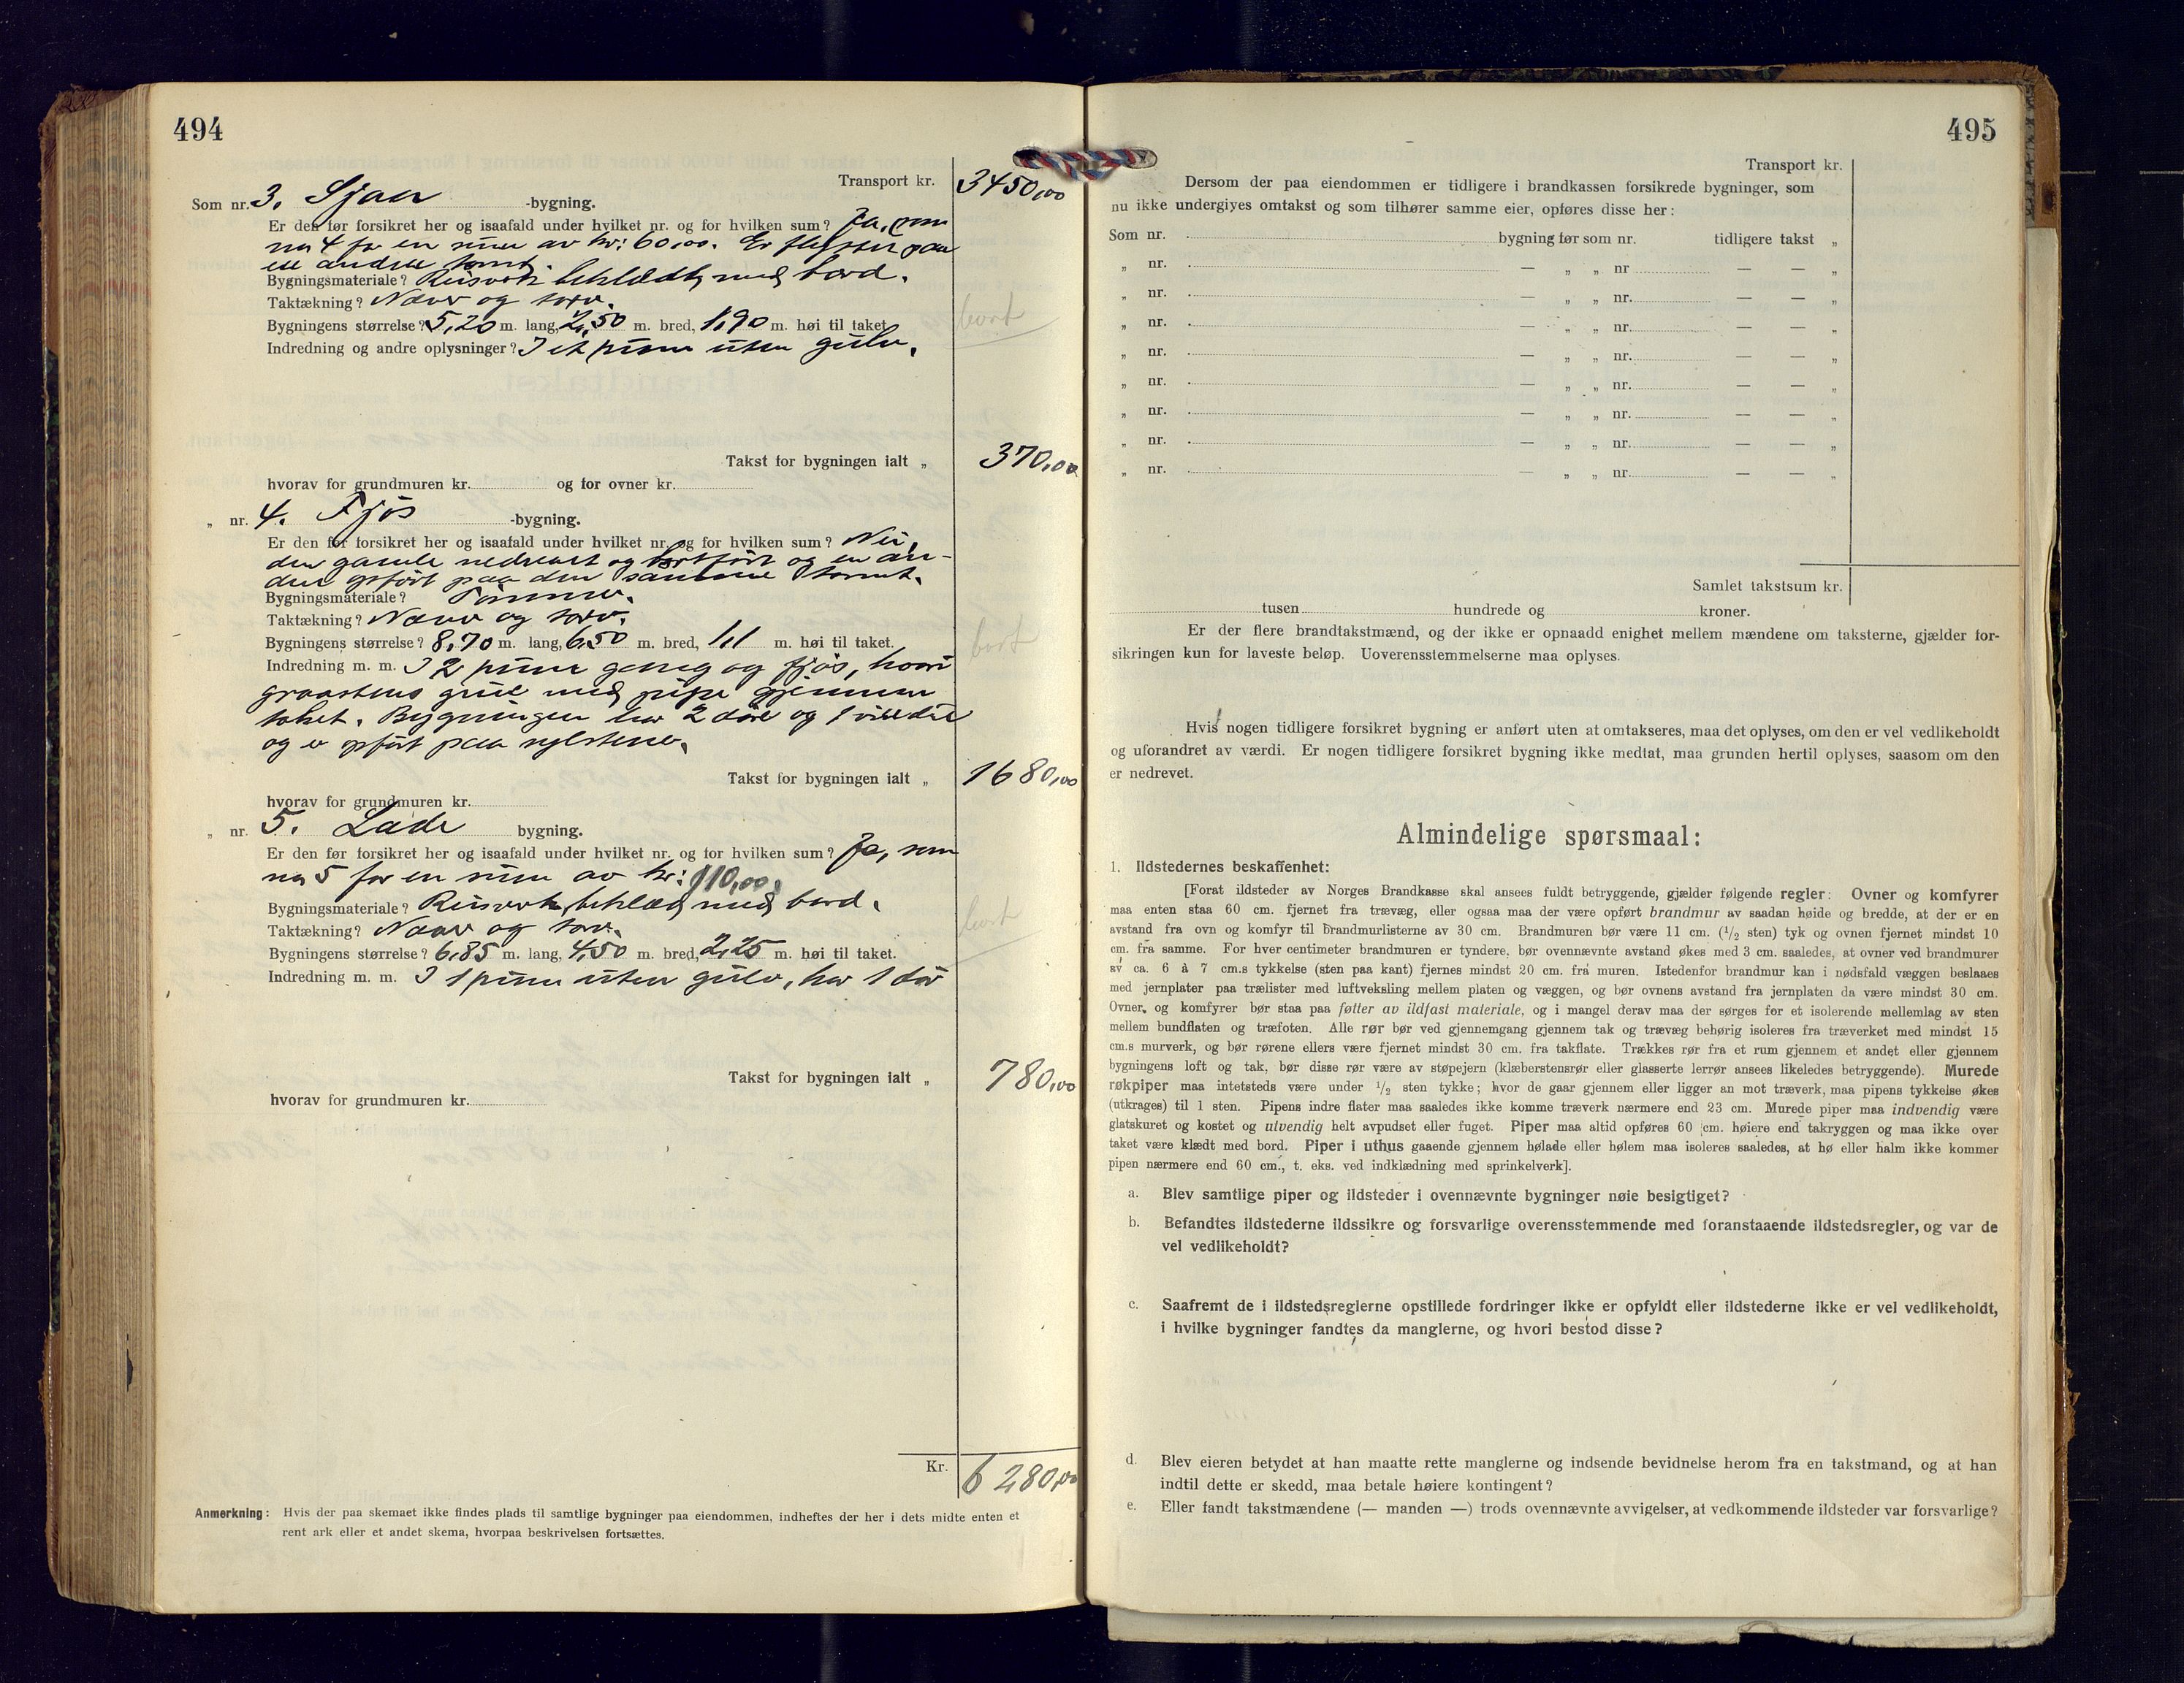 494
Transport kr. 3450,00
Som nr. 3. Sjaa -bygning.
Er den før forsikret her og isaafald under hvilket nr. og for hvilken sum? Ja, som
no 4 for en sum av kr: 60,00. Er flyttet paa
en anden tomt.
Bygningsmateriale? Reisverk beklædt med bord.
Taktækning? Næver og torv.
Bygningens størrelse? 5,20 m. lang, 2,50 m. bred, 1,90 m. høi til taket
bort
Indredning og andre oplysninger? I et rum uten gulv.
Takst for bygningen ialt „ 370,00
hvorav for grundmuren kr. og for ovner kr.
„ nr. 4. Fjøs -bygning.
Er den før forsikret her og isaafald under hvilket nr. og for hvilken sum? Nei,
den gamle nedrevet og bortført og en an-
den opført paa den samme tomt.
Bygningsmateriale? Tømmer.
Taktækning? Næver og torv.
Bygningens størrelse? 8,70 m. lang, 6,50 m. bred, 1,1 m. høi til taket.
bort
Indredning m. m. I 2 rum gang og fjøs, hvori
graastens grue med pipe gjennem
taket. Bygningen har 2 døre og 1 vindu
og er opført paa sylstene.
Takst for bygningen ialt „ 1680,00
hvorav for grundmuren kr.
„ nr. 5. Lade bygning.
Er den før forsikret her og isaafald under hvilket nr. og for hvilken sum? Ja, som
no 5 for en sum av kr: 110,00.
Bygningsmateriale? Reisverk, beklæd med bord.
Taktækning? Næver og torv.
bort
Bygningens størrelse? 6,85 m. lang, 4,50 m. bred, 2,25 m. høi til taket.
Indredning m. m. I 1 rum uten gulv, har 1 dør
Takst for bygningen ialt „ 780,00
hvorav for grundmuren kr.
Kr. 6280,00
Anmerkning: Hvis der paa skemaet ikke findes plads til samtlige bygninger paa eiendommen, indheftes der her i dets midte enten et
rent ark eller et andet skema, hvorpaa beskrivelsen fortsættes.
495
Transport kr.
Dersom der paa eiendommen er tidligere i brandkassen forsikrede bygninger, som
nu ikke undergives omtakst og som tilhører samme eier, opføres disse her:
Som nr. bygning før som nr. tidligere takst „
„ nr. — „ „ nr — — „
„ nr. — „ „ nr. — — „
„ nr. — „ „ nr. — — „
„ nr. — „ „ nr. — — „
„ nr. — „ „ nr. — — „
„ nr. — „ „ nr. — — „
„ nr. — „ „ nr. — — „
„ nr. — „ „ nr. — — „
Samlet takstsum kr.
tusen hundrede og kroner.
Er der flere brandtakstmænd, og der ikke er opnaadd enighet mellem mændene om taksterne, gjælder for-
sikringen kun for laveste beløp. Uoverensstemmelserne maa oplyses.
Hvis nogen tidligere forsikret bygning er anført uten at omtakseres, maa det oplyses, om den er vel vedlikeholdt
og uforandret av værdi. Er nogen tidligere forsikret bygning ikke medtat, maa grunden hertil oplyses, saasom om den
er nedrevet.
Almindelige spørsmaal:
1. Ildstedernes beskaffenhet:
[Forat ildsteder av Norges Brandkasse skal ansees fuldt betryggende, gjælder følgende regler: Ovner og komfyrer
maa enten staa 60 cm. fjernet fra trævæg, eller ogsaa maa der være opført brandmur av saadan høide og bredde, at der er en
avstand fra ovn og komfyr til brandmurlisterne av 30 cm. Brandmuren bør være 11 cm. (1/2 sten) tyk og ovnen fjernet mindst 10
cm. fra samme. For hver centimeter brandmuren er tyndere, bør ovennævnte avstand økes med 3 cm. saaledes, at ovner ved brandmurer
av ca. 6 à 7 cm.s tykkelse (sten paa kant) fjernes mindst 20 cm. fra muren. Istedenfor brandmur kan i nødsfald væggen beslaaes
med jernplater paa trælister med luftveksling mellem platen og væggen, og bør ovnens avstand fra jernplaten da være mindst 30 cm.
Ovner og komfyrer bør staa paa føtter av ildfast materiale, og i mangel derav maa der sørges for et isolerende mellemlag av sten
mellem bundflaten og træfoten. Alle rør bør ved gjennemgang gjennem tak og trævæg behørig isoleres fra træverket med mindst 15
cm.s murverk, og bør rørene ellers være fjernet mindst 30 cm. fra takflate. Trækkes rør fra et rum gjennem et andet eller gjennem
bygningens loft og tak, bør disse rør være av støpejern (klæberstensrør eller glasserte lerrør ansees likeledes betryggende). Murede
røkpiper maa intetsteds være under 1/2 sten tykke; hvor de gaar gjennem eller ligger an mot træverk, maa pipens tykkelse økes
(utkrages) til 1 sten. Pipens indre flater maa saaledes ikke komme træverk nærmere end 23 cm. Murede piper maa indvendig være
glatskuret og kostet og utvendig helt avpudset eller fuget. Piper maa altid opføres 60 cm. høiere end takryggen og maa ikke over
taket være klædt med bord. Piper i uthus gaaende gjennem hølade eller hølem maa isoleres saaledes, at hø eller halm ikke kommer
pipen nærmere end 60 cm., t. eks. ved indklædning med sprinkelverk].
a. Blev samtlige piper og ildsteder i ovennævnte bygninger nøie besigtiget?
b. Befandtes ildstederne ildssikre og forsvarlige overensstemmende med foranstaaende ildstedsregler, og var de
vel vedlikeholdt?
c. Saafremt de i ildstedsreglerne opstillede fordringer ikke er opfyldt eller ildstederne ikke er vel vedlikeholdt,
i hvilke bygninger fandtes da manglerne, og hvori bestod disse?
d. Blev eieren betydet at han maatte rette manglerne og indsende bevidnelse herom fra en takstmand, og at han
indtil dette er skedd, maa betale høiere kontingent?
e. Eller fandt takstmændene (— manden —) trods ovennævnte avvigelser, at vedkommende ildsteder var forsvarlige?